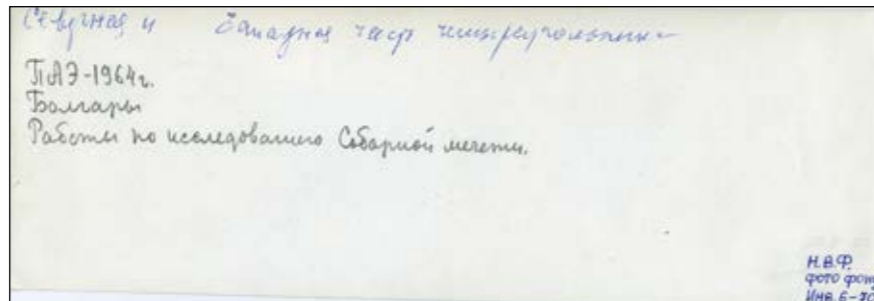 Северная и Западная часть четырехугольника
ПАЭ-1964г.
Болгары
Работы по исследованию Соборной мечети.
Н.В.Ф.
фото фонд
Инв. 6-70